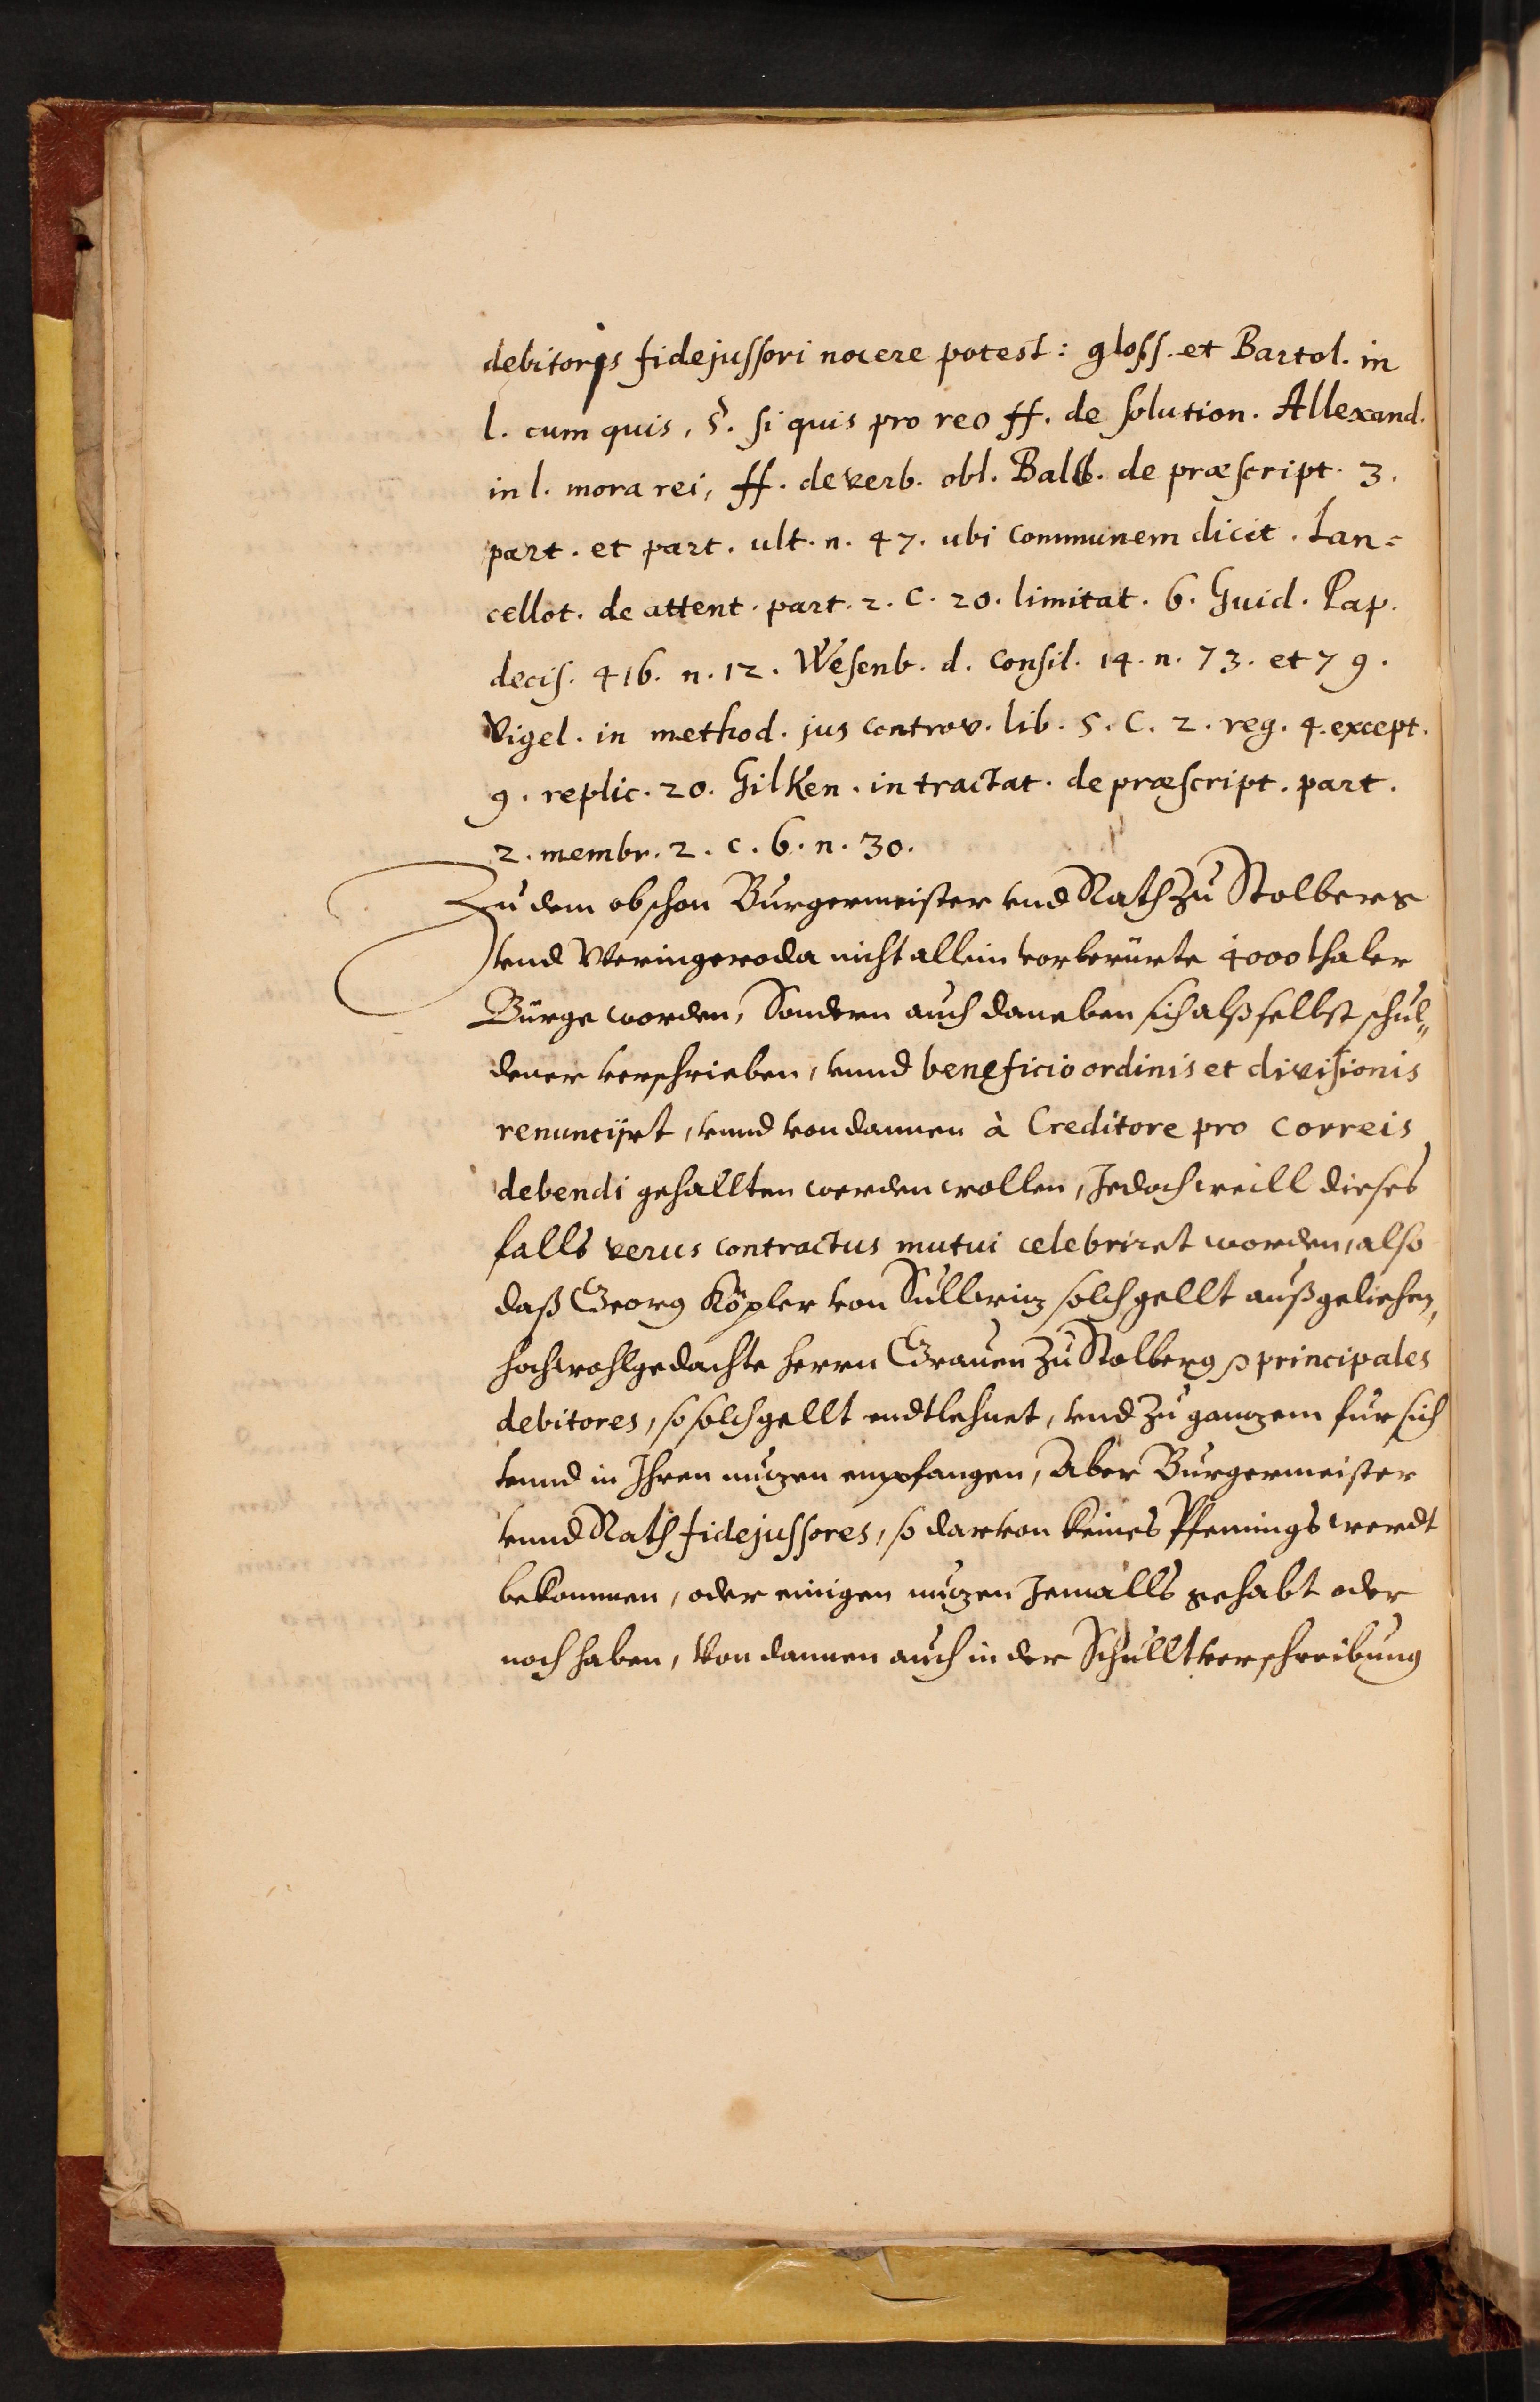 debitoris fidejussori nocere potest: gloss. et Bartol. in
l. cum quis, §. si quis pro reo ff. de solution. Allexand.
in l. mora rei, ff. de verb. obl. Balb. de præscript. 3.
part. et part. ult. n. 47. ubi communem dicit. Lan=
cellot. de attent. part. 2. C. 20. limitat. 6. Guid. Pap.
decis. 416. n. 12. Wesenb. d. Consil. 14. n. 73. et 79.
Vigel. in method. jus controv. lib. 5. C. 2. reg. 4. except.
9. replic. 20. Gilken. in tractat. de præscript. part.
2. membr. 2. c. 6. n. 30.
Zu dem obschon Burgermeister vnd Rath zu Stolberg
vnd Weringeroda nicht allein vorberürte 4000 thaler
Bürge worden, Sondern auch daneben sich alß selbst schul„
dener verschrieben, vnnd beneficio ordinis et divisionis
renuncijrt, vnnd von dannen à Creditore pro correis
debendi gehallten werden wollen, Jedoch weill dieses
falls verus contractus mutui celebriret worden, also
daß Georg Köpler von Sullwiz solch gellt außgeliehen,
hochwohlgedachte herrn Grauen zu Stolberg principales
debitores, so solch gellt endtlehnet, vnd zu ganzem fur sich
vnnd in Ihren nuzen empfangen, Aber Burgermeister
vnnd Rath fidejussores, so darvon keines Pfennings werdt
bekommen, oder einigen nuzen Jemalls gehabt oder
noch haben, Von dannen auch in der Schulltverschreibung